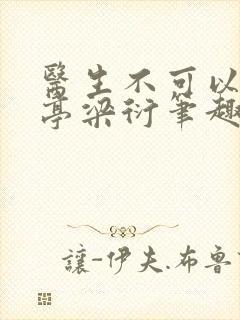 醫生不可以
亭梁衍筆趣
讓-伊夫.布魯